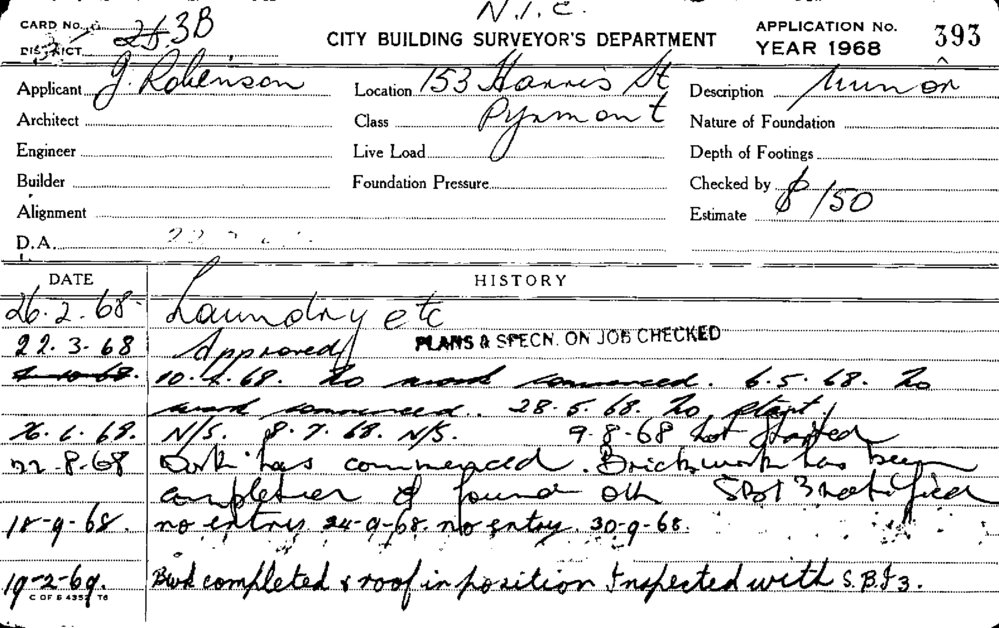 N.I.C.
CARD No. 253B
DISTRICT
CITY BUILDING SURVEYOR'S DEPARTMENT
APPLICATION No. 393
YEAR 1968
Applicant J. Robinson Location 153 Harris St Description Minor
Architect Class Pyrmont Nature of Foundation
Engineer Live Load Depth of Footings
Builder Foundation Pressure Checked by
Alignment Estimate $150
D.A.
DATE HISTORY
26.2.68 Laundry etc
22.3.68 Approved PLANS & SPECN. ON JOB CHECKED
10.4.68. No work commenced. 6.5.68. No
work commenced. 28.5.68. No start.
26.6.68. N/S. 8.7.68. N/S. 9.8.68 Not started
22-8-68 Work has commenced. Brickwork has been
completed & found OK SBI 3 notified
18-9-68. no entry 24-9-68. no entry. 30-9-68.
19-2-69. Bwk completed & roof in position Inspected with S.B.I 3.
C OF S 4352 T6